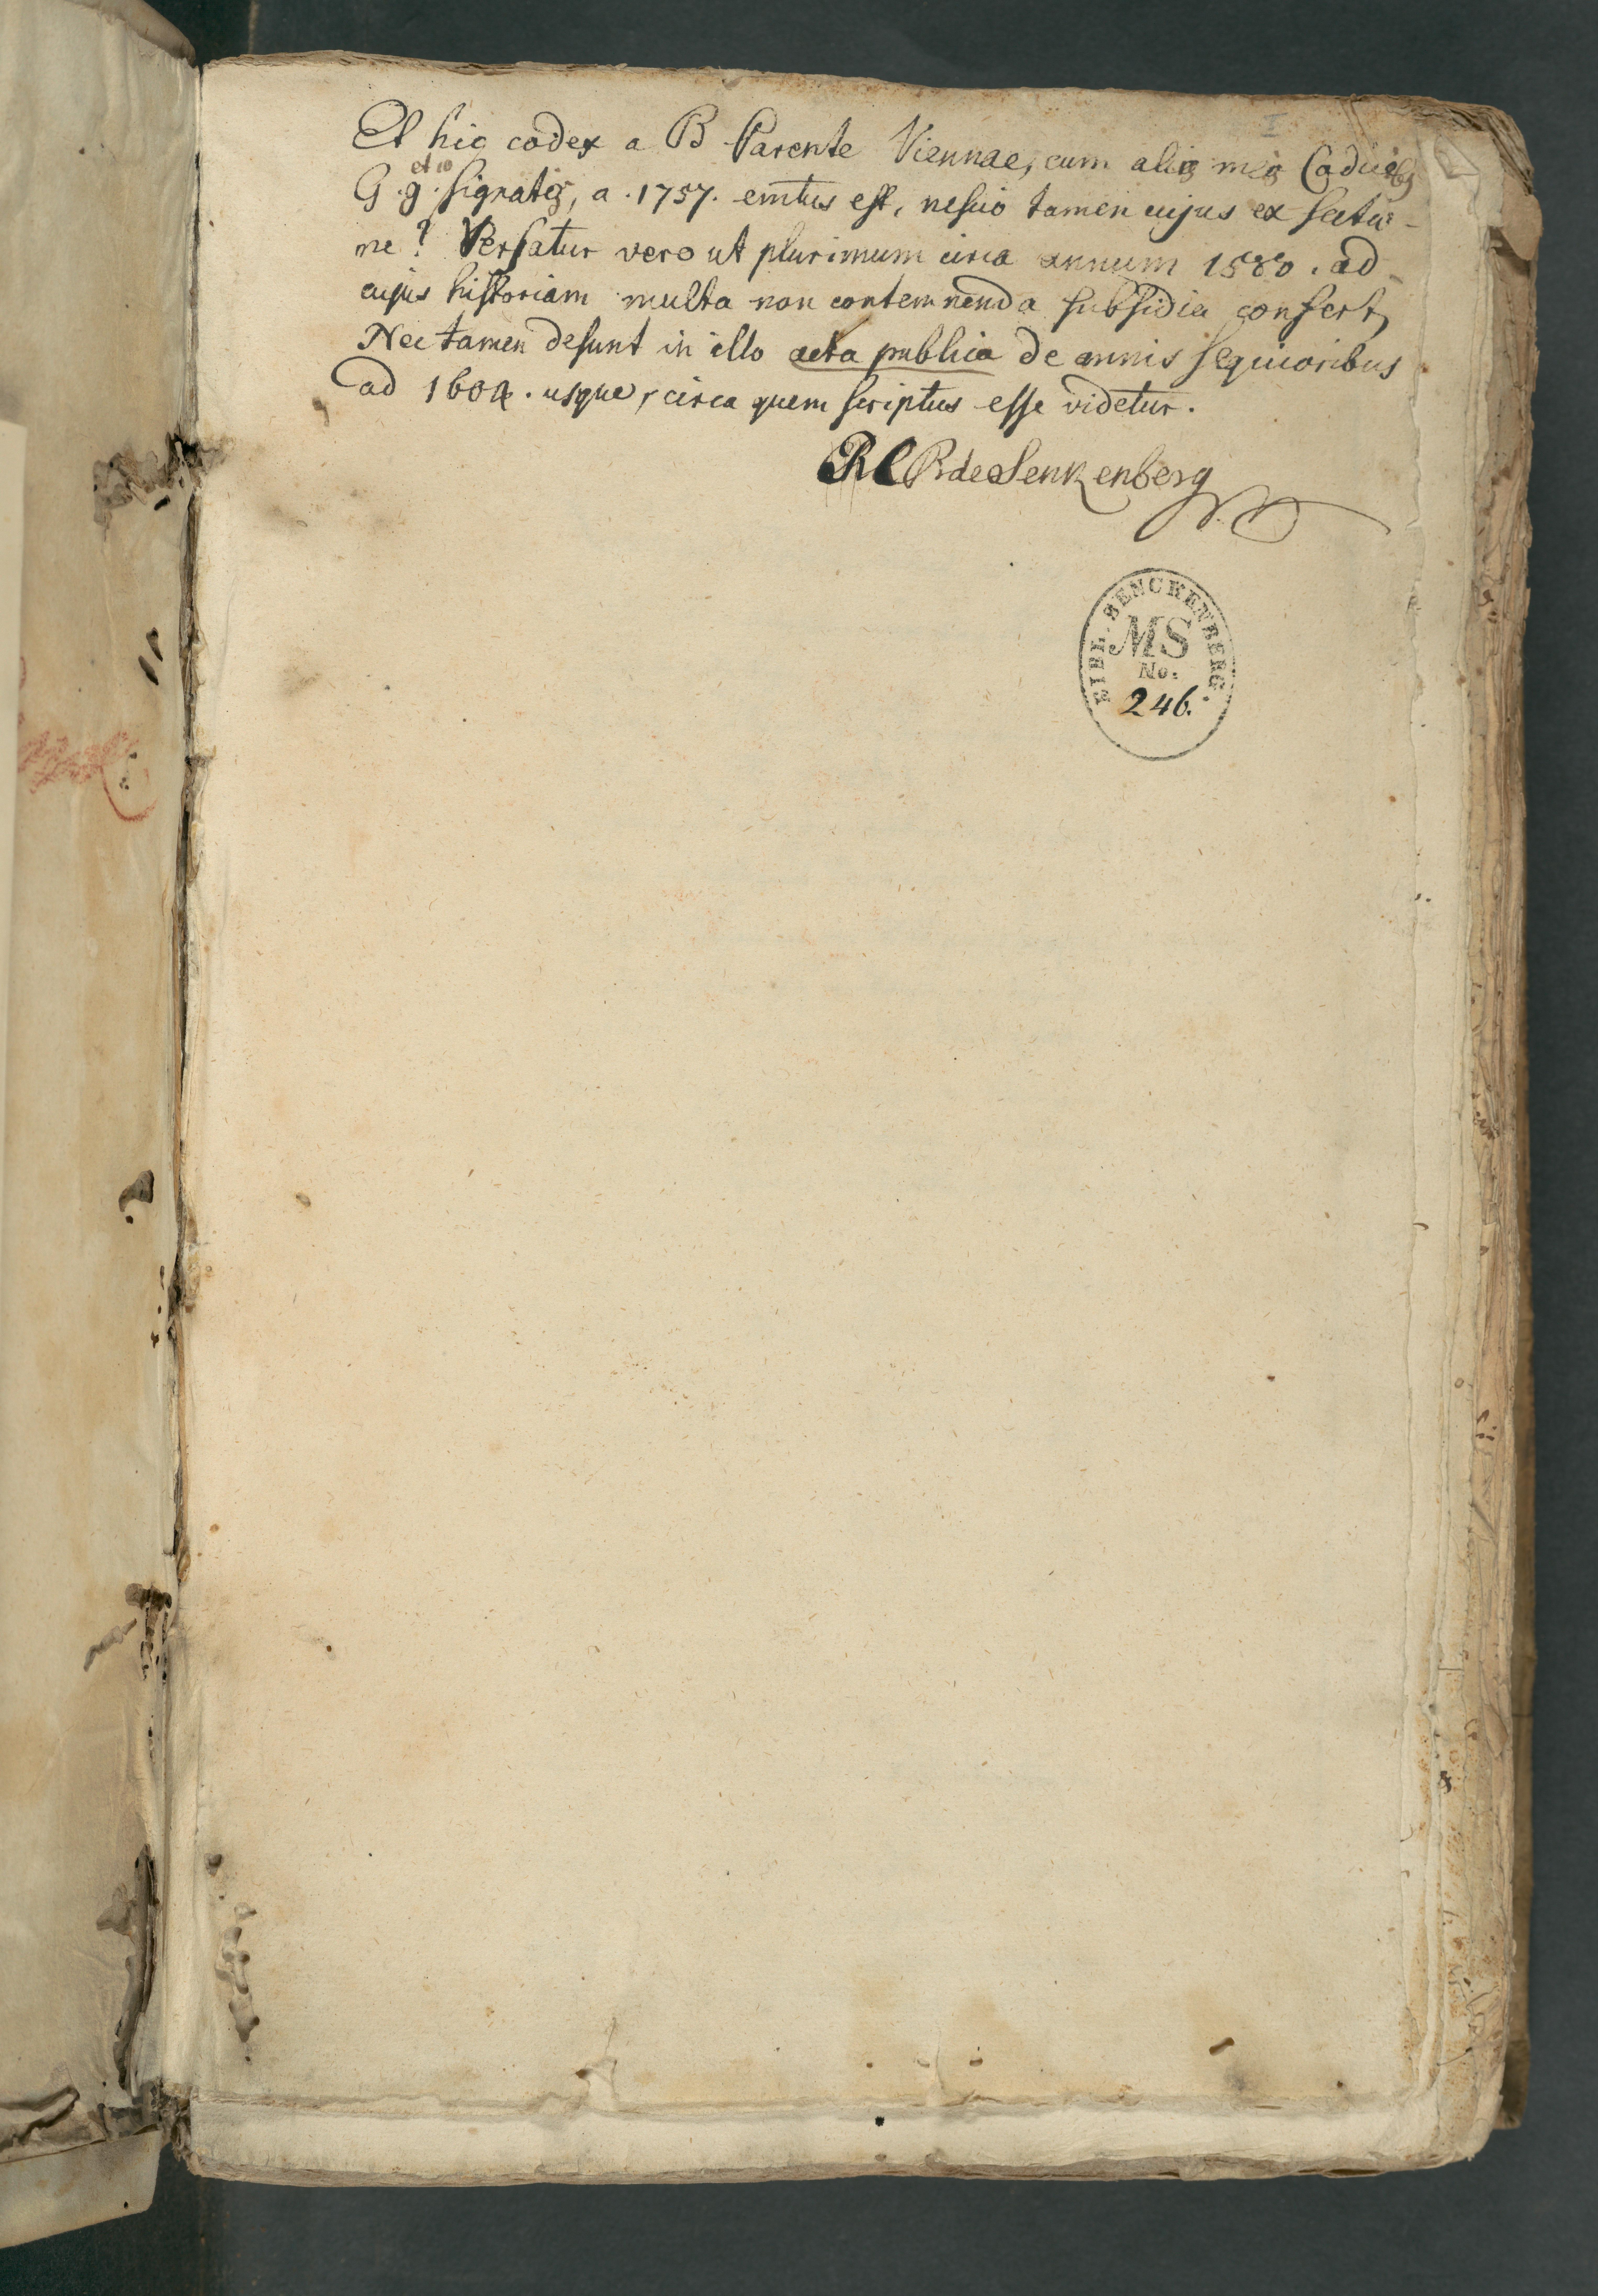 Et hic codex a B Parente Viennae, cum aliis meis Codicibus
et 10
G. g. signatis, a. 1757. emtus est, nescio tamen cujus ex sectio-
ne? Versatur vero ut plurimum circa annum 1580. ad
cujus historiam multa non contemnenda subsidia confert,
Nec tamen desunt in illo acta publica de annis sequioribus
ad 1604. usque, circa quem scriptus esse videtur.
RC R de Senkenberg
BIBL. SENCKENBERG.
MS
No:
246.